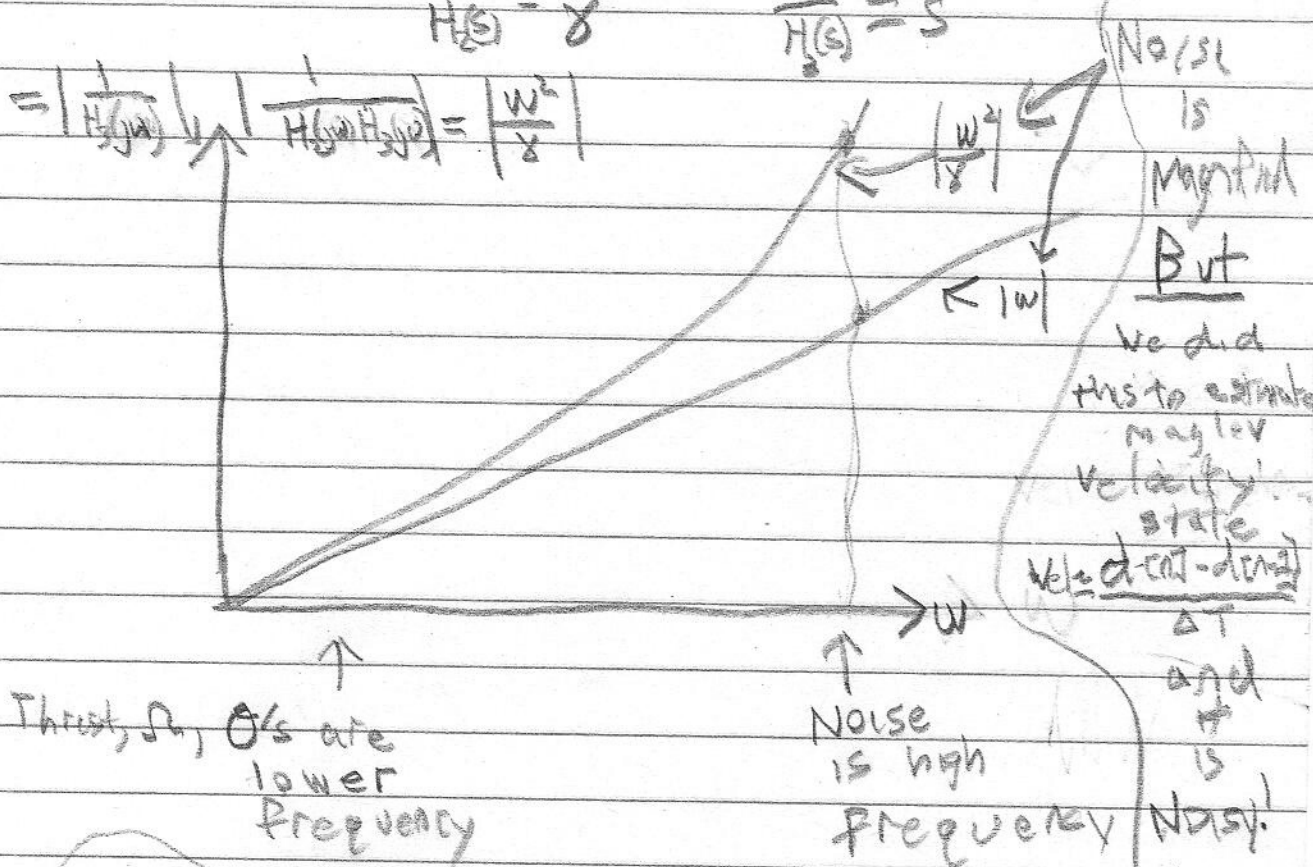 H₂(s) = γ
H₃(s) = S
= |1/H₃(jw)|, |1/H₂(jw)H₃(jw)| = |w²/γ|
|w²/γ|
|w|
w
Noise
is
Magnified
But
We did
this to estimate
maglev
velocity
state
Vel = d[n]-d[n-1]
ΔT
and
it
is
Noisy!
Thrust, Ω, θ's are
lower
frequency
Noise
is high
frequency